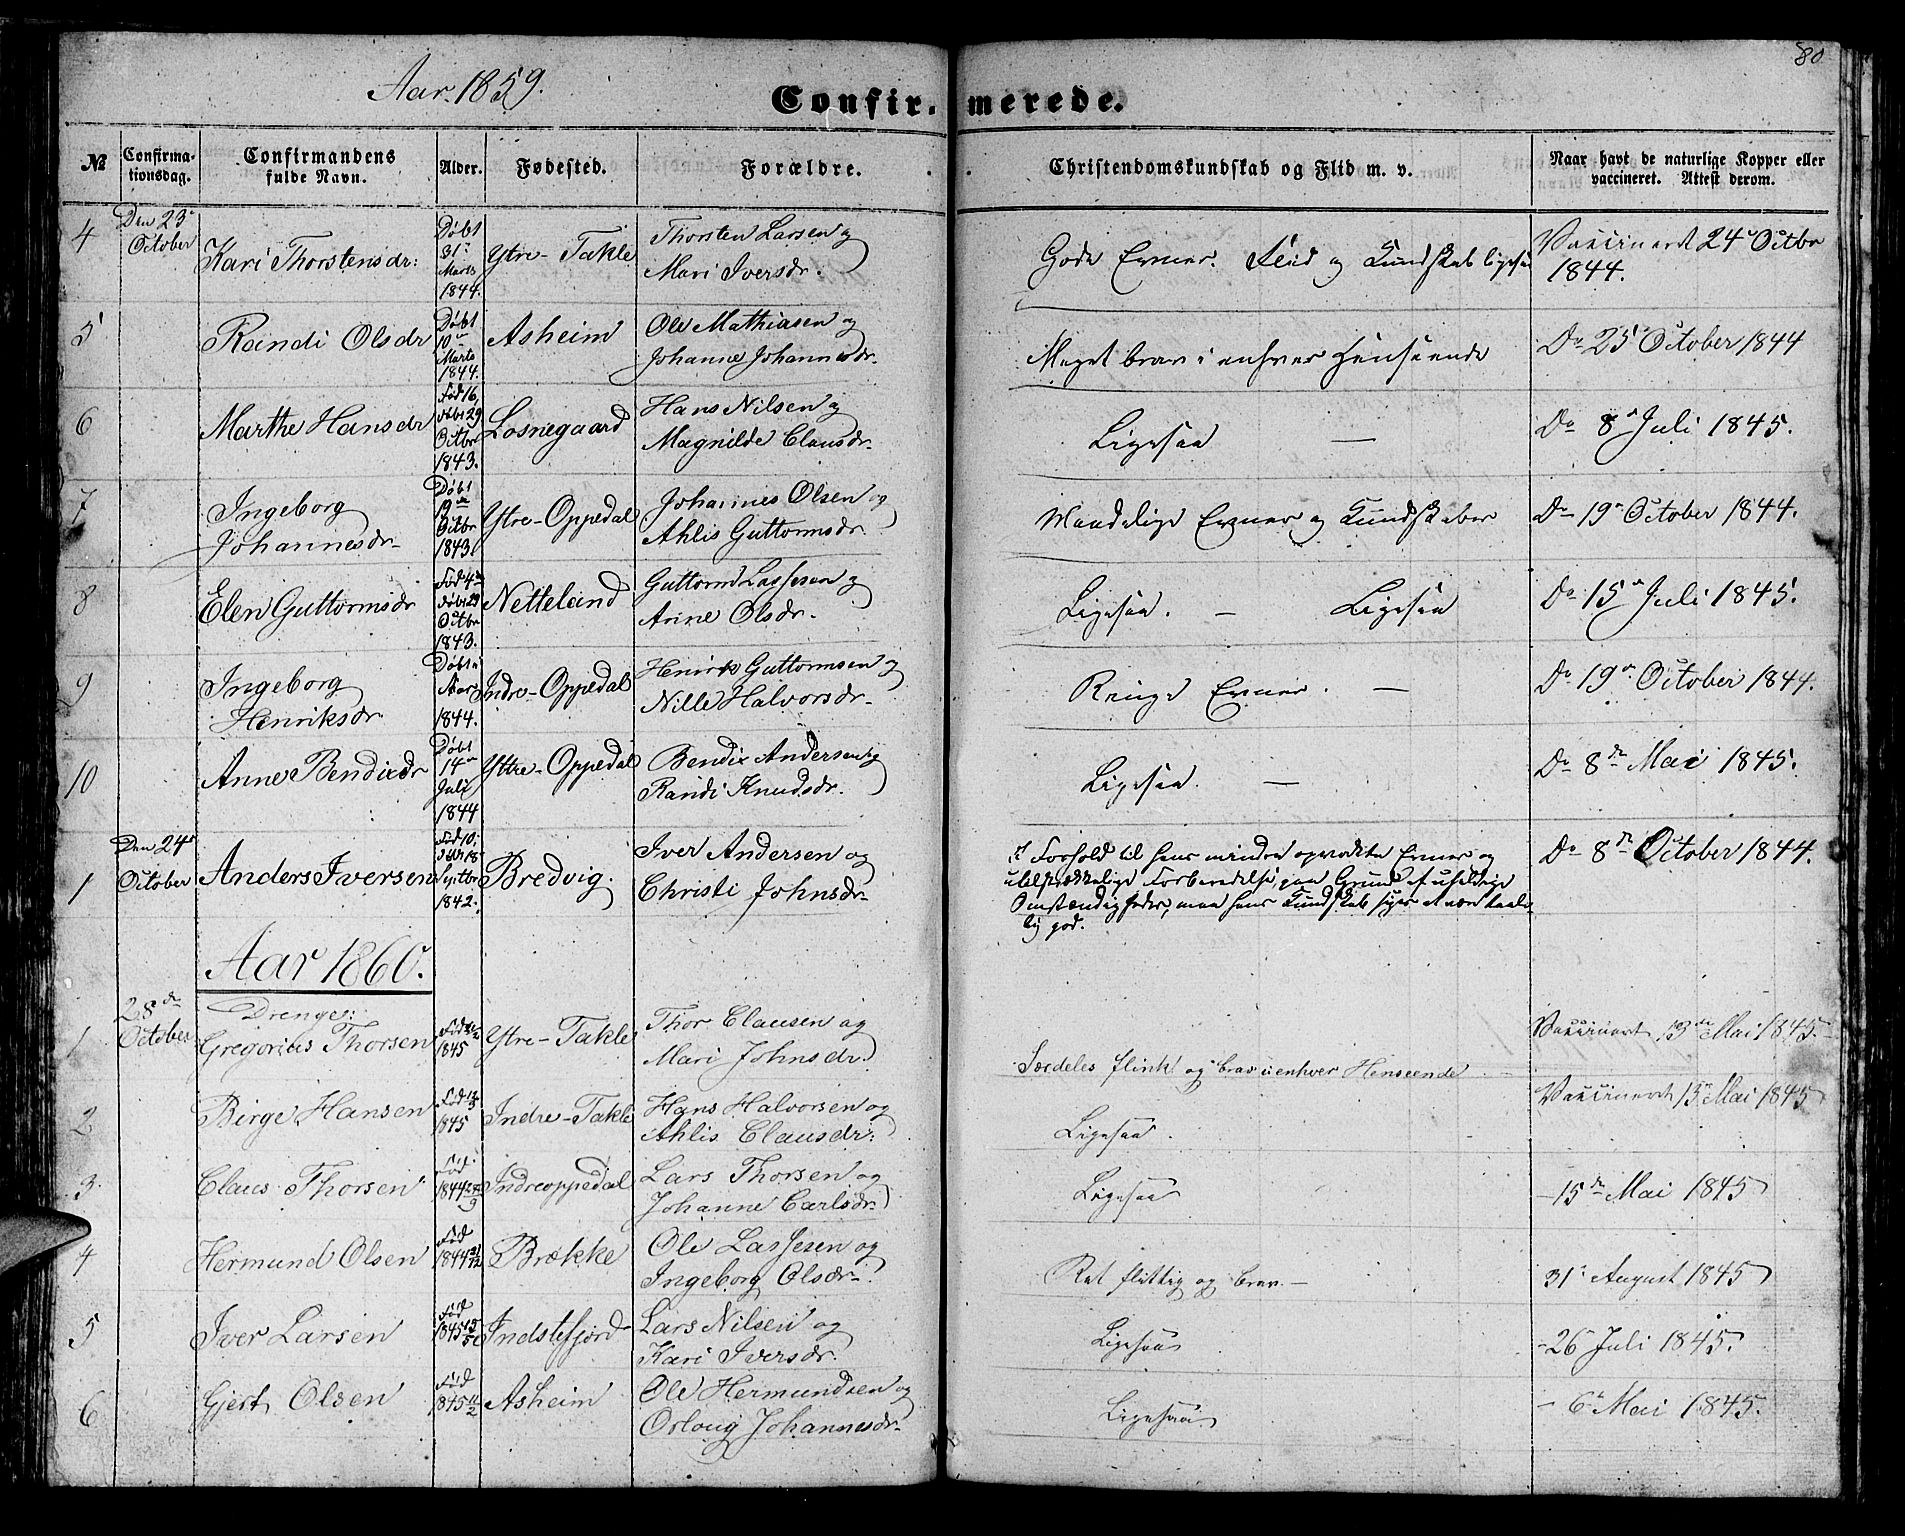 80
Aar 1859.
Confir- merede.
№ Confirma-tionsdag. Confirmandens fulde Navn. Alder. Fødested. Forældre. Christendomskundskab og Flid m. v. Naar havt de naturlige Kopper eller vaccineret. Attest derom.
4 Den 23 October Kari Thorstensdr: Døbt 31 Marts 1844. Ytre-Takle Thorsten Larsen og Mari Iversdr. Gode Evner. Flid og Kundskab ligesaa Vaccineret 24 Octbr 1844.
5 Randi Olsdr Døbt 10 Marts 1844. Asheim Ole Mathiasen og Johanne Johannesdr. Meget brav i enhver Henseende Do 25 October 1844
6 Marthe Hansdr Fød 16, døbt 29 Octbr 1843. Losnegaard Hans Nilsen og Magnilde Clausdr. Ligesaa — Do 8 Juli 1845.
7 Ingeborg Johannesdr Døbt 19de Octbr 1843. Ytre-Oppedal Johannes Olsen og Ahlis Guttormsdr. Maadelige Evner og Kundskaber Do 19 October 1844.
8 Elen Guttormsdr Fød 4de døbt 29 Octbr 1843. Netteland Guttorm Lassesen og Anne Olsdr. Ligesaa. — Ligesaa Do 15 Juli 1845.
9 Ingeborg Henriksdr Døbt Mar 1844. Indre-Oppedal Henrik Guttormsen og Nille Halvorsdr. Ringe Evner. — Do 19 October 1844.
10 Anne Bendixdr Døbt 14 Juli 1844 Yttre-Oppedal Bendix Andersen og Randi Knudsdr. Ligesaa. — Do 8de Mai 1845.
1 Den 24 October Anders Iversen Fød 10. døbt 18 Septbr 1842. Bredvig. Iver Andersen og Christi Johnsdr. I Forhold til hans mindre opvakte Evner og
utilstrækkelige Forberedelse paa Grund af uheldige
Omstændigheder, maa hans Kundskab siges at være taale-
lig god. Do 8de October 1844.
Aar 1860.
Drenge:
1 28de October Gregorius Thorsen Fød 1845 Ytre-Takle Thor Clausen og Mari Johnsdr. Særdeles flink og brav i enhver Henseende Vaccineret 13de Mai 1845.
2 Birge Hansen Fød 1845 Indre-Takle Hans Halvorsen og Ahlis Clausdr. Ligesaa. Vaccineret 13 Mai 1845
3 Claus Thorsen Fød 1844 Indreoppedal Lars Thorsen og Johanne Carlsdr. Ligesaa - 15de Mai 1845
4 Hermund Olsen Fød 1844 Brække Ole Lassesen og Ingeborg Olsdr. Ret flittig og brav. — 31 August 1845
5 Iver Larsen Fød 1845 Indstefjord Lars Nilsen og Kari Iversdr. Ligesaa - 26 Juli 1845.
6 Gjert Olsen Fød 1845 Asheim Ole Hermundsen og Orloug Johannesdr. Ligesaa - 6 Mai 1845.